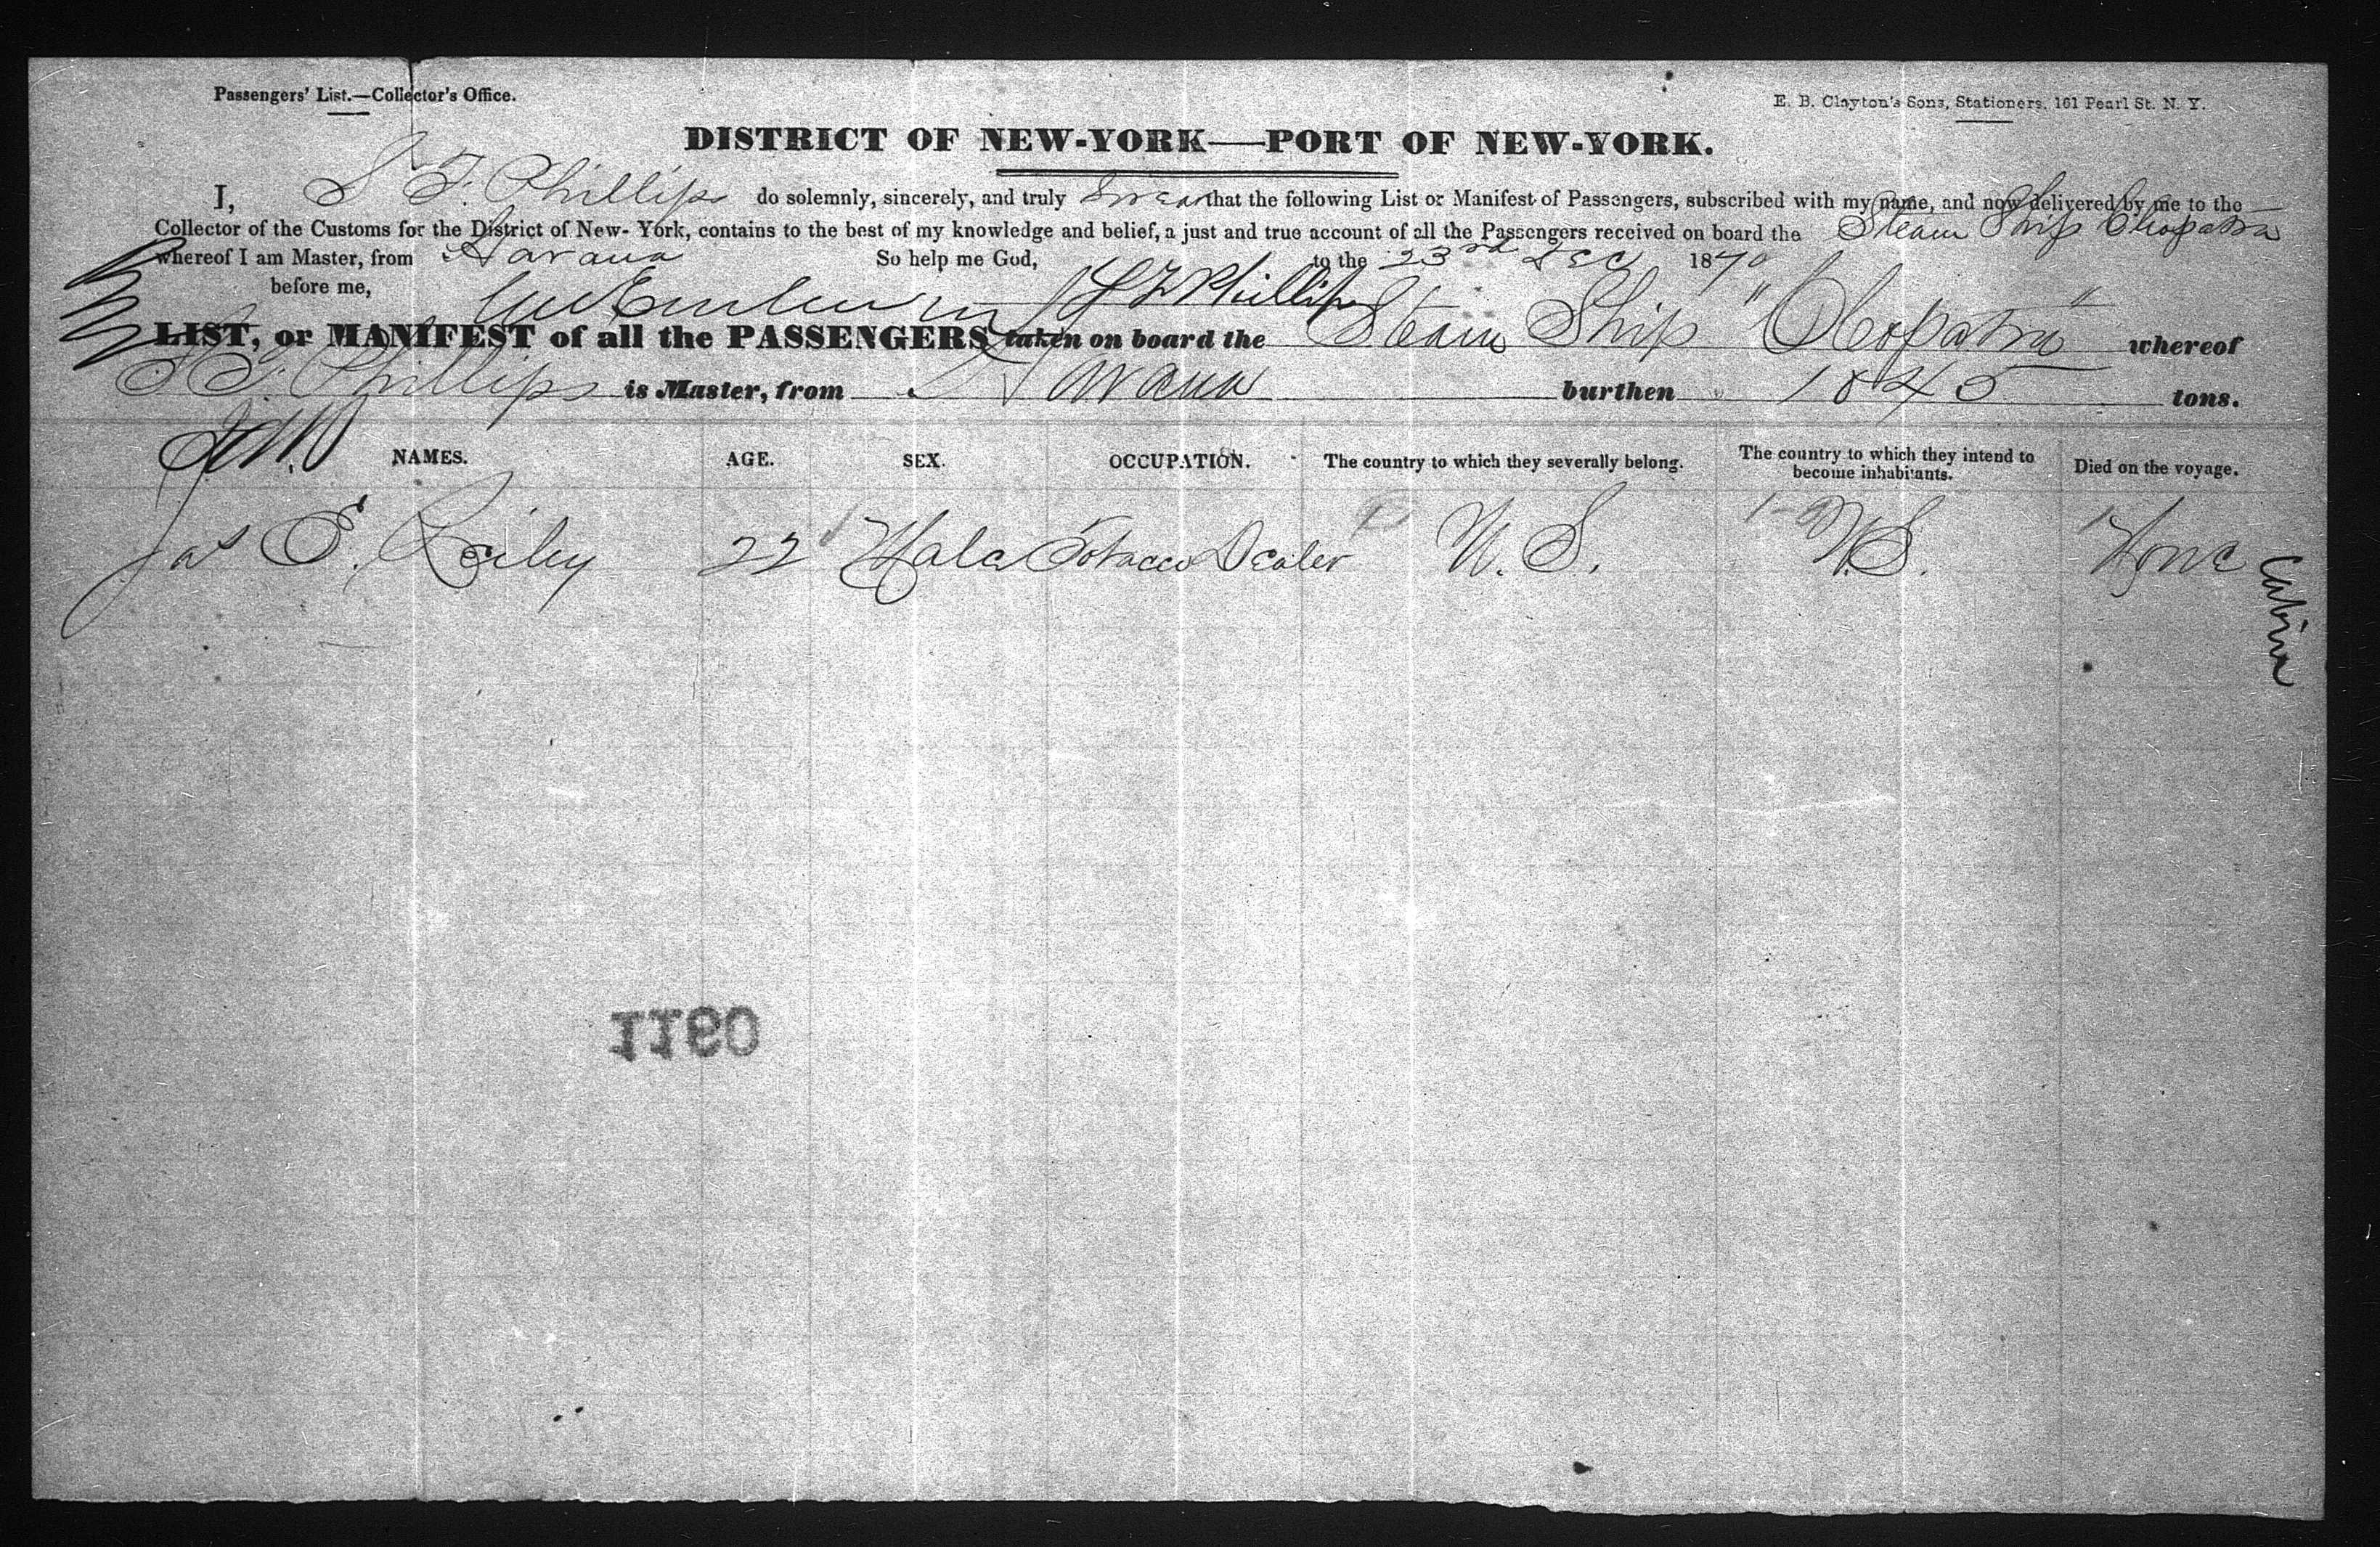 Passengers' List.—Collector's Office.
E. B. Clayton's Sons, Stationers, 161 Pearl St. N. Y.
DISTRICT OF NEW-YORK—PORT OF NEW-YORK.
I, S F. Phillips do solemnly, sincerely, and truly Swear that the following List or Manifest of Passengers, subscribed with my name, and now delivered by me to the
Collector of the Customs for the District of New-York, contains to the best of my knowledge and belief, a just and true account of all the Passengers received on board the Steam Ship Cleopatra
whereof I am Master, from Havana So help me God, to the 23rd Dec 1870
before me, S F Phillips
LIST, or MANIFEST of all the PASSENGERS taken on board the Steam Ship "Cleopatra" whereof
S F. Phillips is Master, from Havana burthen 1045 tons.
NAMES. AGE. SEX. OCCUPATION. The country to which they severally belong. The country to which they intend to become inhabitants. Died on the voyage.
Jas E. Reiley 22 Male Tobacco Dealer U. S. U. S. None
Cabin
1160